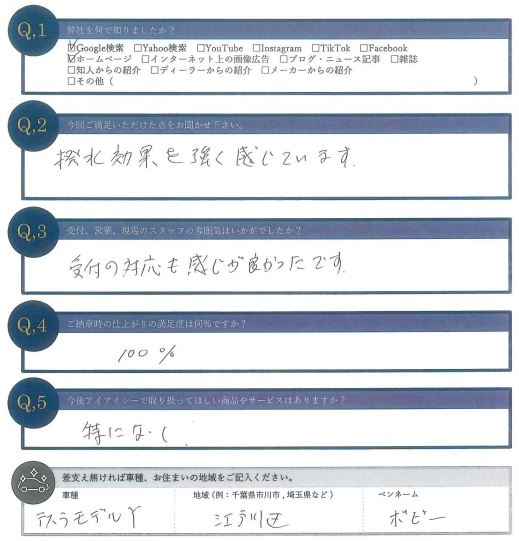 Q,1 弊社を何で知りましたか？
☑Google検索 □Yahoo検索 □YouTube □Instagram □TikTok □Facebook
☑ホームページ □インターネット上の画像広告 □ブログ・ニュース記事 □雑誌
□知人からの紹介 □ディーラーからの紹介 □メーカーからの紹介
□その他（ ）
Q,2 今回ご満足いただけた点をお聞かせ下さい。
撥水効果を強く感じています.
Q,3 受付、営業、現場のスタッフの雰囲気はいかがでしたか？
受付の対応も感じが良かったです.
Q,4 ご納車時の仕上がりの満足度は何％ですか？
100%
Q,5 今後アイアイシーで取り扱ってほしい商品やサービスはありますか？
特になし.
差支え無ければ車種、お住まいの地域をご記入ください。
車種 地域（例：千葉県市川市,埼玉県など） ペンネーム
テスラモデルY 江戸川区 ボビー